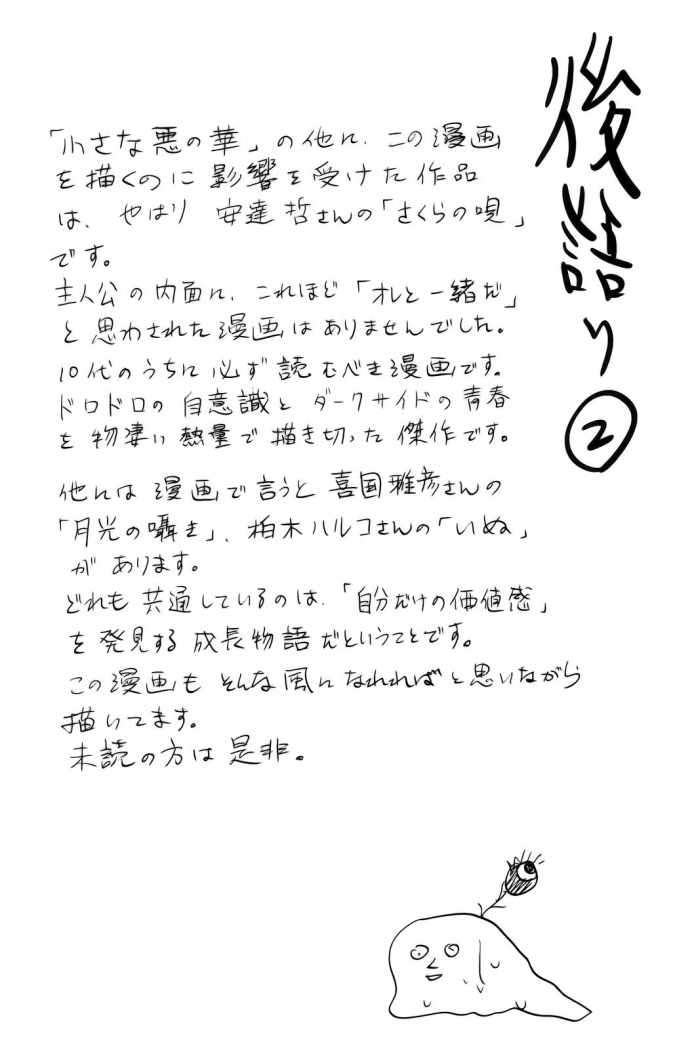 後語り②
「小さな悪の華」の他に、この漫画
を描くのに影響を受けた作品
は、やはり 安達哲さんの「さくらの唄」
です。
主人公の内面に、これほど「オレと一緒だ」
と思わされた漫画はありませんでした。
10代のうちに必ず読むべき漫画です。
ドロドロの自意識とダークサイドの青春
を物凄い熱量で描き切った傑作です。
他には漫画で言うと喜国雅彦さんの
「月光の囁き」、柏木ハルコさんの「いぬ」
があります。
どれも共通しているのは、「自分だけの価値感」
を発見する成長物語だということです。
この漫画もそんな風になれればと思いながら
描いてます。
未読の方は是非。